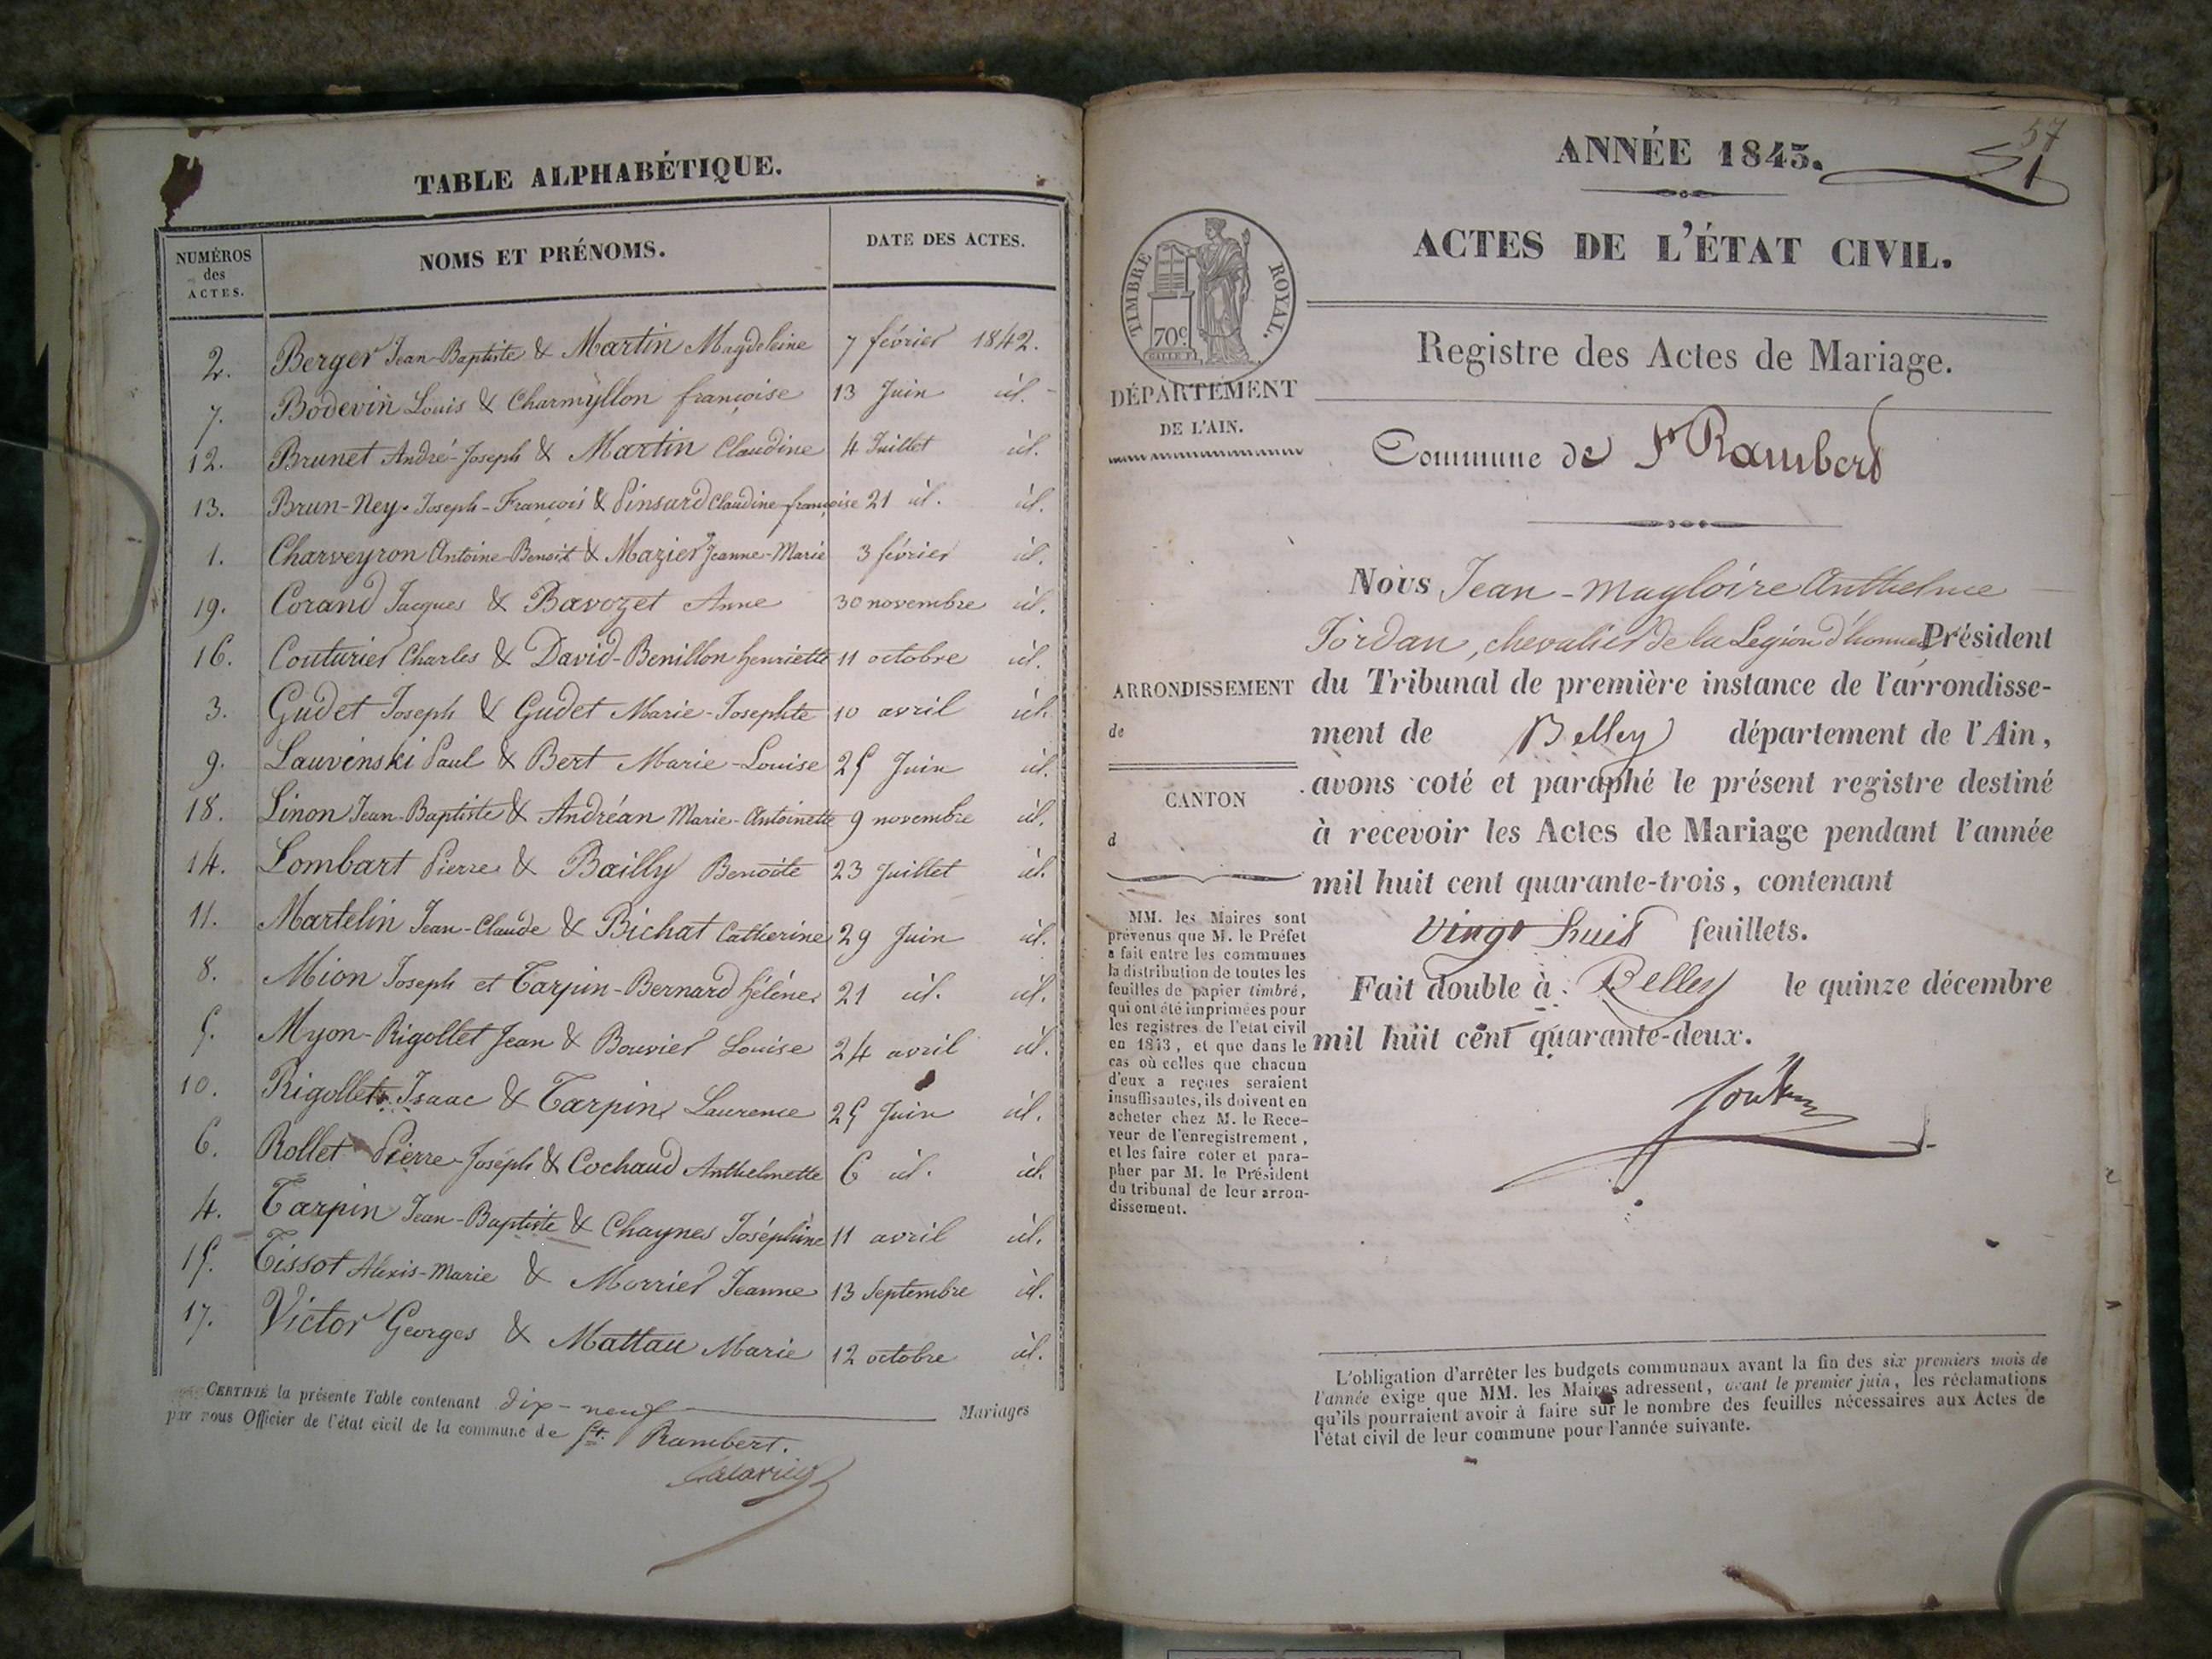 TABLE ALPHABÉTIQUE.
NUMÉROS des ACTES. NOMS ET PRÉNOMS. DATE DES ACTES.
2. Berger Jean-Baptiste & Martin Magdeleine 7 février 1842.
7. Bodevin Louis & Charmyllon françoise 13 Juin id.
12. Brunet André-Joseph & Martin Claudine 4 Juillet id.
13. Brun-Ney Joseph-François & Pinsard Claudine-françoise 21 id. id.
1. Charveyron Antoine-Benoit & Mazier Jeanne-Marie 3 février id.
19. Corand Jacques & Bavozet Anne 30 novembre id.
16. Couturier Charles & David-Benillon henriette 11 octobre id.
3. Gudet Joseph & Gudet Marie-Josephte 10 avril id.
9. Lauvinski Paul & Bert Marie-Louise 25 Juin id.
18. Linon Jean-Baptiste & Andréan Marie-Antoinette 9 novembre id.
14. Lombart Pierre & Bailly Benoite 23 Juillet id.
11. Martelin Jean-Claude & Bichat Catherine 29 Juin id.
8. Mion Joseph et Tarpin-Bernard hélène 21 id. id.
5. Myon-Rigollet Jean & Bouvier Louise 24 avril id.
10. Rigollet Isaac & Tarpin Laurence 25 Juin id.
6. Rollet Pierre-Joseph & Cochaud Anthelmette 6 id. id.
4. Tarpin Jean-Baptiste & Chaynes Joséphine 11 avril id.
15. Tissot Alexis-Marie & Morrier Jeanne 13 Septembre id.
17. Victor Georges & Mattau Marie 12 octobre id.
CERTIFIÉ la présente Table contenant dix-neuf Mariages
par nous Officier de l'état civil de la commune de St. Rambert.
57
ANNÉE 1843.
51
ACTES DE L'ÉTAT CIVIL.
TIMBRE ROYAL.
70c
DÉPARTEMENT
DE L'AIN.
Registre des Actes de Mariage.
Commune de St Rambert
Nous Jean-Magloire Anthelme
Jordan, chevalier de la Legion d'honneur Président
du Tribunal de première instance de l'arrondisse-
ment de Belley département de l'Ain,
avons coté et paraphé le présent registre destiné
à recevoir les Actes de Mariage pendant l'année
mil huit cent quarante-trois, contenant
vingt huit feuillets.
Fait double à Belley le quinze décembre
mil huit cent quarante-deux.
ARRONDISSEMENT
de
CANTON
d
MM. les Maires sont
prévenus que M. le Préfet
a fait entre les communes
la distribution de toutes les
feuilles de papier timbré,
qui ont été imprimées pour
les registres de l'etat civil
en 1843, et que dans le
cas où celles que chacun
d'eux a reçues seraient
insuffisantes, ils doivent en
acheter chez M. le Rece-
veur de l'enregistrement,
et les faire coter et para-
pher par M. le Président
du tribunal de leur arron-
dissement.
L'obligation d'arrêter les budgets communaux avant la fin des six premiers mois de
l'année exige que MM. les Maires adressent, avant le premier juin, les réclamations
qu'ils pourraient avoir à faire sur le nombre des feuilles nécessaires aux Actes de
l'état civil de leur commune pour l'année suivante.